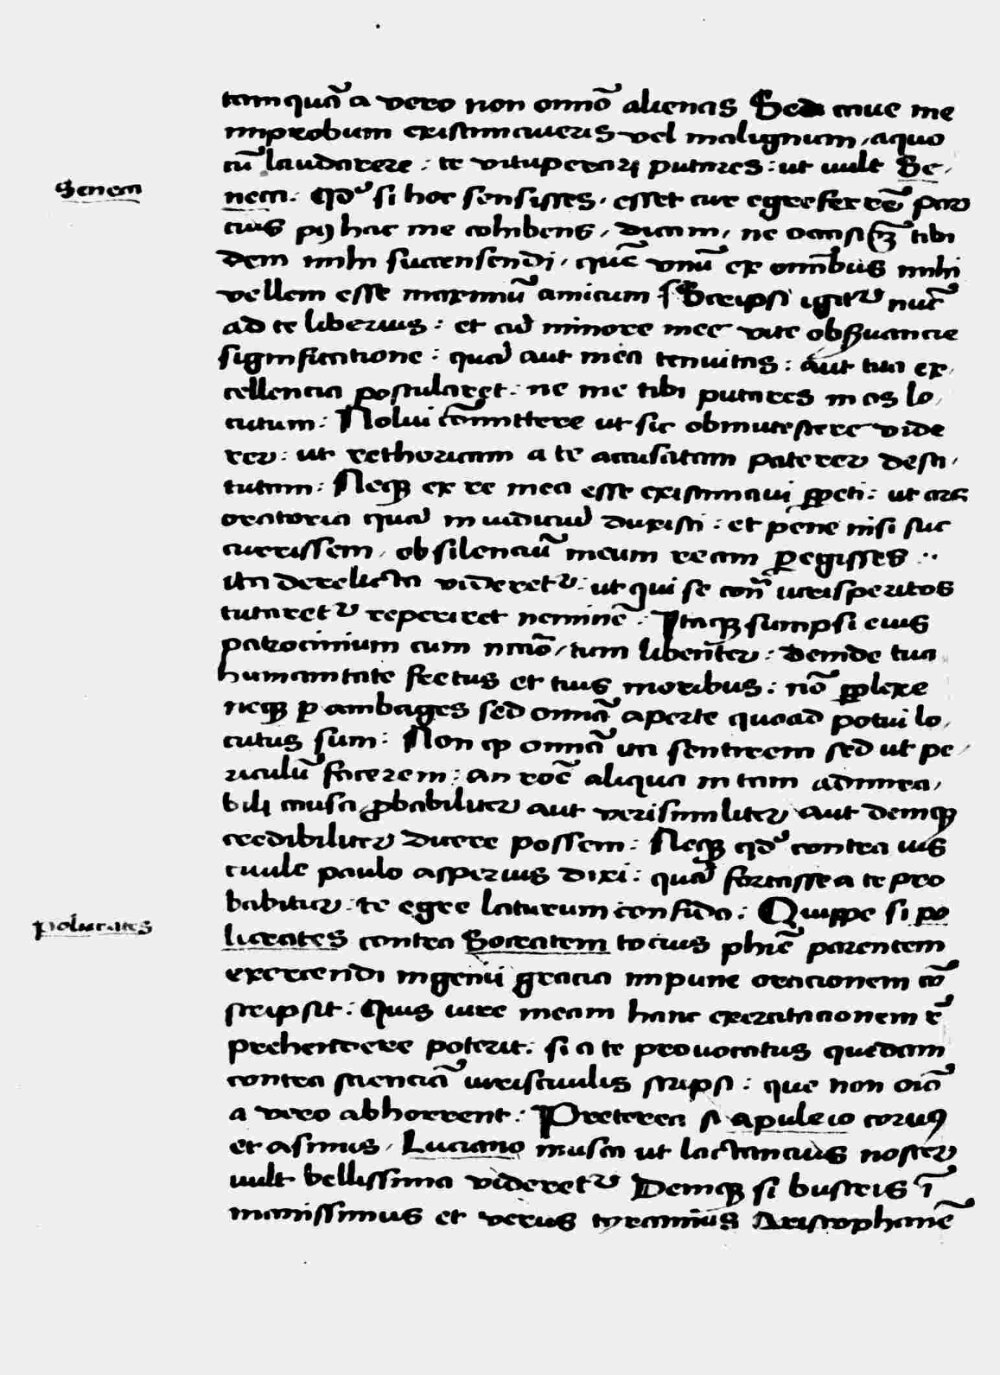 tamquā a vero non omnō alienas Sed caue me
improbum existimaueris vel malignum, aquo
cū laudarere : te vituperari putares : ut uult Se,
Seneca
neca : Qd' si hoc sensisses, esset cur egre ferrē par
cius hac me cohibens, dicam, ne tibi
dem mihi succensendi, quē vnū ex omībus mihi
vellem esse maximū amicum Scripsi igitr nūc
ad te liberius : et cū minore mee vite obseruancie
significatione : quā aut mea tenuitas : aut tua ex,
cellencia postularet : ne me tibi putares in os lo,
cutum : Nolui cōmittere ut sic obmutescere vide
rer : ut rethoricam a te accusatam paterer desti,
tutam : Neqꝫ ex re mea esse existimaui ꝑpeti : ut ars
oratoria quā in iudiciū duxisti : et pene nisi suc
currissem, ob silenciū meum ream ꝑegisses ··
ita derelicta videretr : ut qui se conͣ iurisperitos
tutaretr reperiret neminē : Itaqꝫ sumpsi eius
patrocinium cum nacō, tum libenter : deinde tua
humanitate fretus et tuis moribus : nō ꝑplexe
neqꝫ ꝑ ambages sed omnā aperte quoad potui lo,
cutus sum : Non ꝙ omnā ita sentirem sed ut pe,
riculū facerem : an rōē aliqua in tam admira,
bili causa ꝓbabiliter aut verisimiliter aut deniqꝫ
credibiliter dicere possem : Neqꝫ qd' contra ius
ciuile paulo asperius dixi : quā fortasse a te pro
babitur : te egre laturum confido : Quippe si po
Policrates
licrates contra Socratem tocius phīe parentem
exercendi ingenii gracia impune oracionem cō
scripsit : Quis iure meam hanc exercitacionem rē
prehendere poterit : si a te prouocatus quedam
contra scienciā iuris ciuilis scripsi : que non oīā
a vero abhorrent : Preterea si apuleio coruꝯ
et asinus, Luciano musca ut lactancius noster
uult bellissima videretr Deniqꝫ si busiris ī
manissimus et verus tyrannus Aristophanē